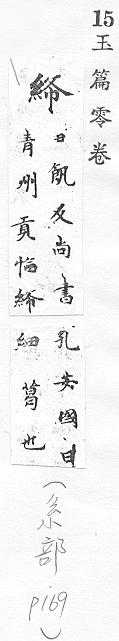 15玉篇零卷
絺
丑飢反尚書
青州貢塩絺
孔安國曰
細葛也
(糸部 p169)